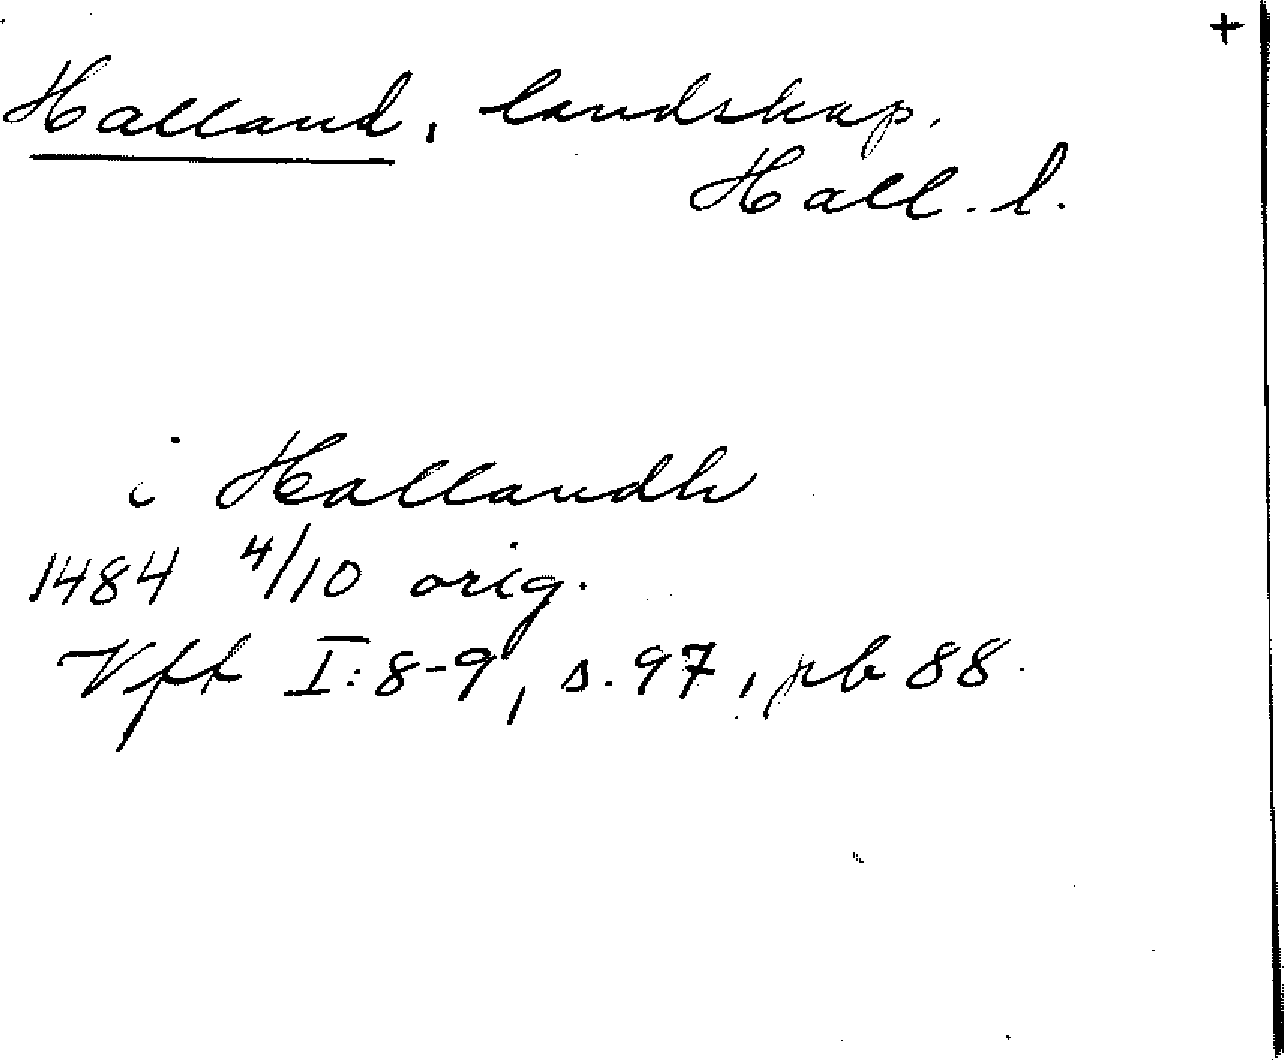 +
Halland, landskap.
Hall. l.
i Hallandh
1484 4/10 orig.
Vfft I:8-9, s. 97, pb 88.